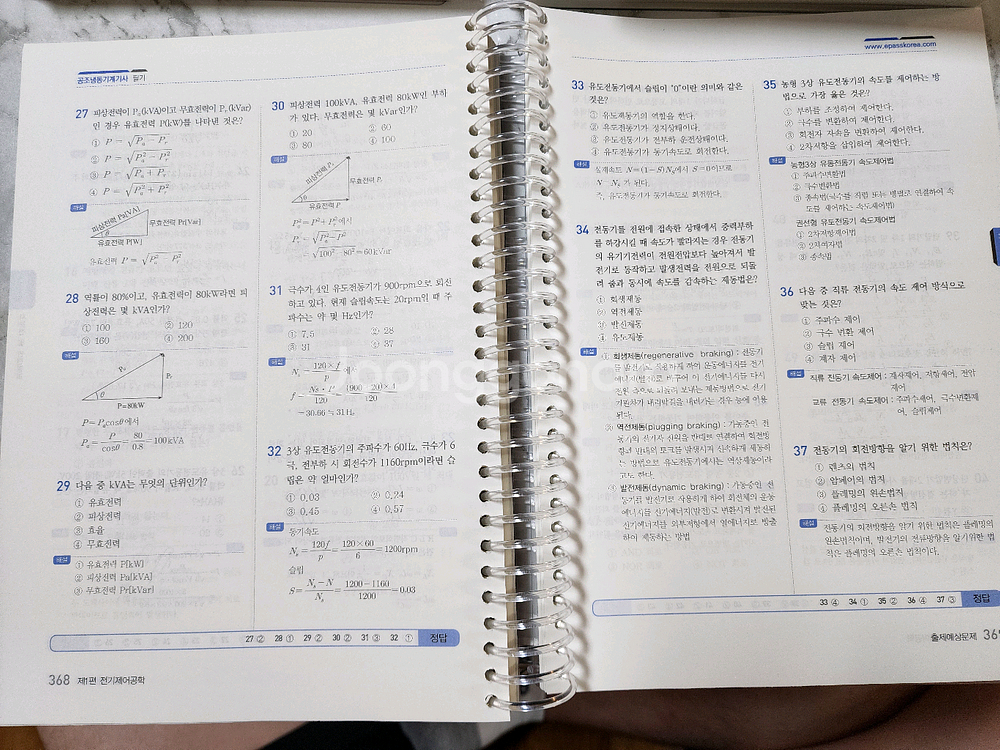 공조냉동기계기사 필기
27 피상전력이 Pa(kVA)이고 무효전력이 Pr(kVar)
인 경우 유효전력 P(kW)를 나타낸 것은?
① P = √(Pa - Pr)
② P = √(Pa² - Pr²)
③ P = √(Pa + Pr)
④ P = √(Pa² + Pr²)
해설
피상전력 Pa[VA]
무효전력 Pr[Var]
θ
유효전력 P[W]
유효전력 P = √(Pa² - Pr²)
28 역률이 80%이고, 유효전력이 80kW라면 피
상전력은 몇 kVA인가?
① 100 ② 120
③ 160 ④ 200
해설
Pa
Pr
θ
P=80kW
P=Pa cosθ에서
Pa = P/cosθ = 80/0.8 = 100kVA
29 다음 중 kVA는 무엇의 단위인가?
① 유효전력
② 피상전력
③ 효율
④ 무효전력
해설
① 유효전력 P[kW]
② 피상전력 Pa[kVA]
③ 무효전력 Pr[kVar]
30 피상전력 100kVA, 유효전력 80kW인 부하
가 있다. 무효전력은 몇 kVar인가?
① 20 ② 60
③ 80 ④ 100
해설
피상전력 Pa
무효전력 Pr
θ
유효전력 P
Pa² = P² + Pr²에서
Pr = √(Pa² - P²)
= √(100² - 80²) = 60kVar
31 극수가 4인 유도전동기가 900rpm으로 회전
하고 있다. 현재 슬립속도는 20rpm일 때 주
파수는 약 몇 Hz인가?
① 7.5 ② 28
③ 31 ④ 37
해설
Ns = 120×f/p 에서
= 30.66 ≒ 31Hz
32 3상 유도전동기의 주파수가 60Hz, 극수가 6
극, 전부하 시 회전수가 1160rpm이라면 슬
립은 약 얼마인가?
① 0.03 ② 0.24
③ 0.45 ④ 0.57
해설
동기속도
Ns = 120f/p = 120×60/6 = 1200rpm
슬립
S = (Ns - N)/Ns = (1200-1160)/1200 = 0.03
27 ② 28 ① 29 ② 30 ② 31 ③ 32 ① 정답
368 제1편 전기제어공학
www.epasskorea.com
33 유도전동기에서 슬립이 "0"이란 의미와 같은
것은?
① 유도제동기의 역할을 한다.
② 유도전동기가 정지상태이다.
③ 유도전동기가 전부하 운전상태이다.
④ 유도전동기가 동기속도로 회전한다.
해설
N=(1-S)Ns에서 S=0이므로
N=Ns가 된다.
즉, 유도전동기가 동기속도로 회전한다.
34 전동기를 전원에 접속한 상태에서 중력부하
를 하강시킬 때 속도가 빨라지는 경우 전동기
의 유기기전력이 전원전압보다 높아져서 발
전기로 동작하고 발생전력을 전원으로 되돌
려 줌과 동시에 속도를 감속하는 제동법은?
① 회생제동
② 역전제동
③ 발전제동
④ 유도제동
해설
① 회생제동(regenerative braking) : 전동기
② 역전제동(plugging braking) : 가동중인 전
③ 발전제동(dynamic braking) : 가동중인 전
하여 제동하는 방법
35 농형 3상 유도전동기의 속도를 제어하는 방
법으로 가장 옳은 것은?
① 부하를 조정하여 제어한다.
② 극수를 변환하여 제어한다.
③ 회전자 자속을 변환하여 제어한다.
④ 2차저항을 삽입하여 제어한다.
해설
농형3상 유동전동기 속도제어법
① 주파수변환법
② 극수변환법
③ 종속법(극수를 직렬 또는 병렬로 연결하여 속
도를 제어하는 속도제어법)
권선형 유도전동기 속도제어법
① 2차저항제어법
② 2차여자법
③ 종속법
36 다음 중 직류 전동기의 속도 제어 방식으로
맞는 것은?
① 주파수 제어
② 극수 변환 제어
③ 슬립 제어
④ 계자 제어
해설
직류 전동기 속도제어 : 계자제어, 저항제어, 전압
제어
교류 전동기 속도제어 : 주파수제어, 극수변환제
어, 슬립제어
37 전동기의 회전방향을 알기 위한 법칙은?
① 렌츠의 법칙
② 암페어의 법칙
③ 플레밍의 왼손법칙
④ 플레밍의 오른손 법칙
해설
전동기의 회전방향을 알기 위한 법칙은 플레밍의
왼손법칙이며, 발전기의 전류방향을 알기위한 법
칙은 플레밍의 오른손 법칙이다.
33 ④ 34 ① 35 ② 36 ④ 37 ③ 정답
출제예상문제 369